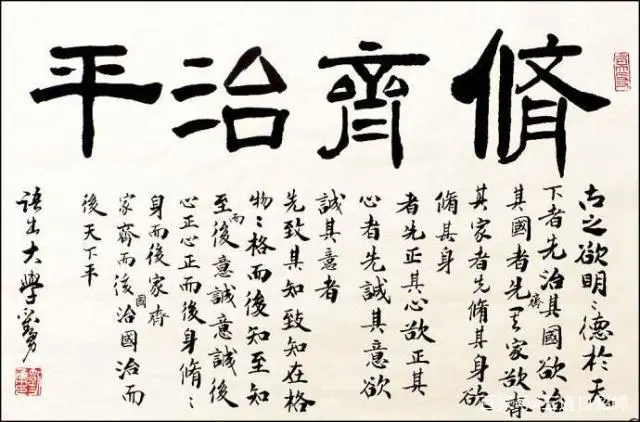 脩齊治平
古之欲明〻德於天
下者先治其國欲治
其國者先齊其家欲齊
其家者先脩其身欲
脩其身
者先正其心欲正其
心者先誠其意欲
誠其意者
先致其知致知在格
物〻格而後知至知
至而後意誠意誠後
心正心正而後身脩〻
身而後家齊
家齊而後國治國治而
後天下平
語出大學